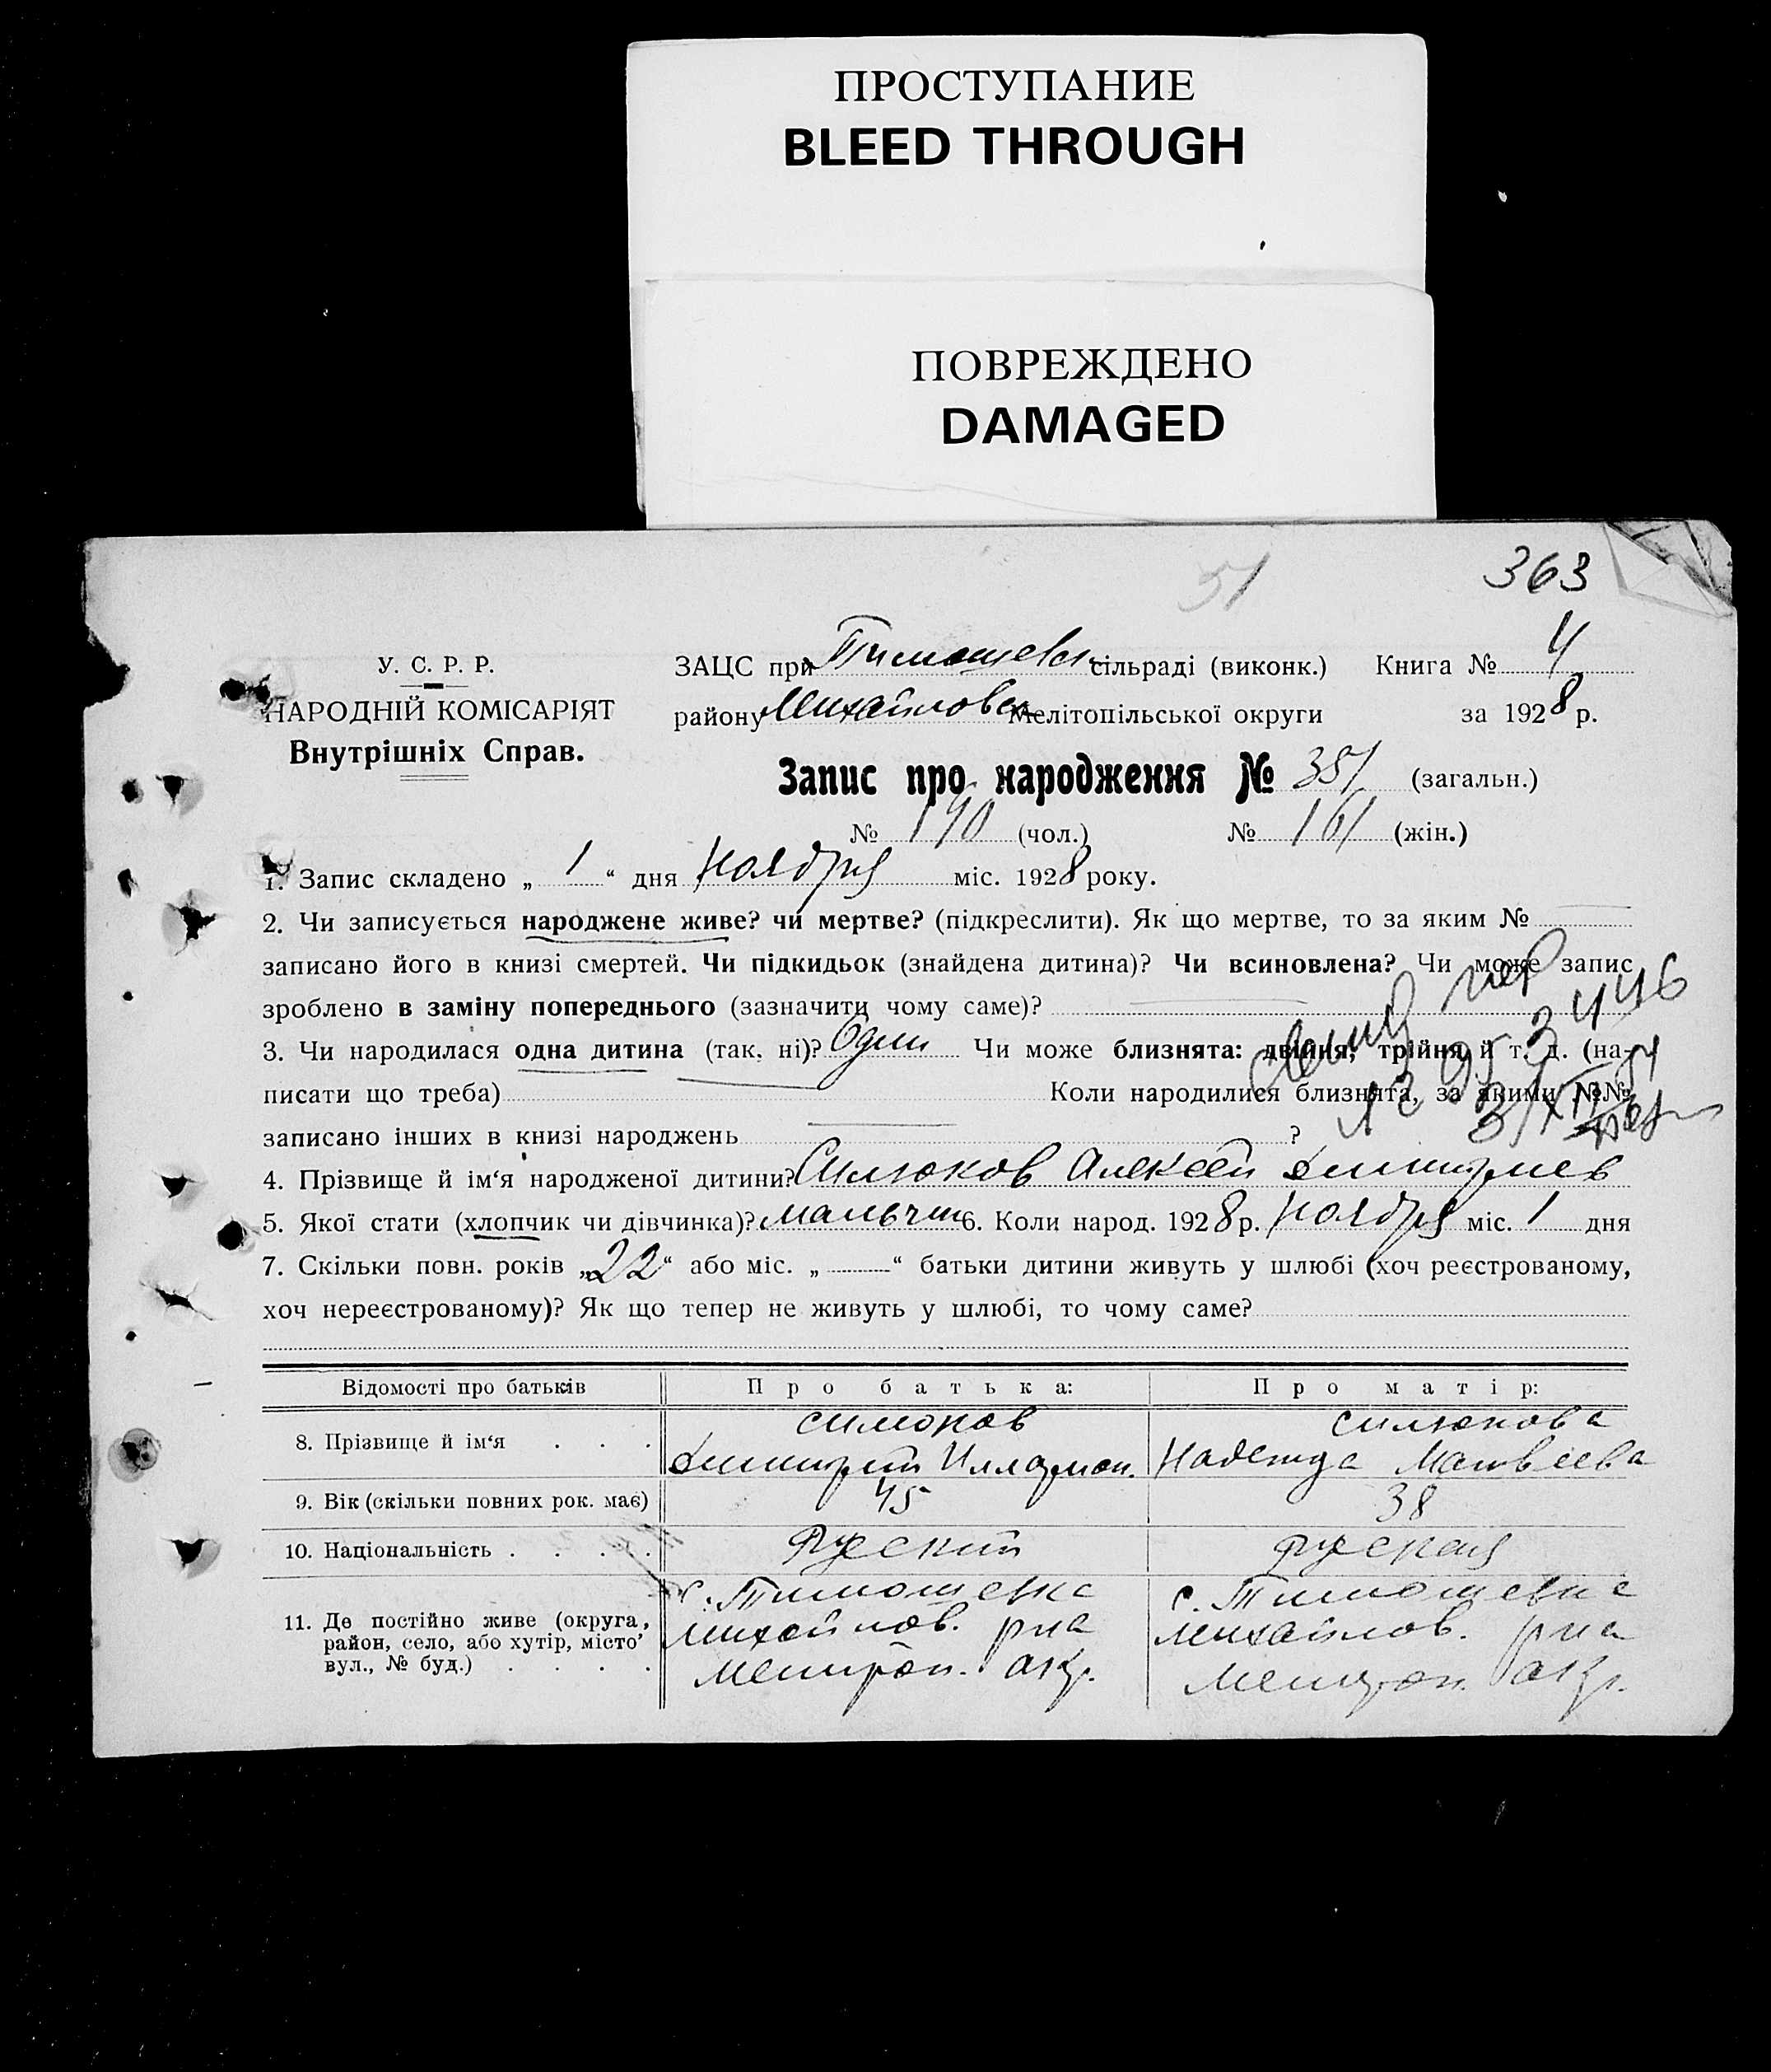 ПРОСТУПАНИЕ
BLEED THROUGH
ПОВРЕЖДЕНО
DAMAGED
51 363
У. С. Р. Р.
НАРОДНІЙ КОМІСАРІЯТ
Внутрішніх Справ.
ЗАЦС при Тимошевск сільраді (виконк.) Книга № 4
району Михайловск Мелітопільської округи за 1928 р.
Запис про народження № 351 (загальн.)
№ 190 (чол.) № 161 (жін.)
1. Запис складено „ 1 “ дня Ноября міс. 1928 року.
2. Чи записується народжене живе? чи мертве? (підкреслити). Як що мертве, то за яким №
записано його в книзі смертей. Чи підкидьок (знайдена дитина)? Чи всиновлена? Чи може запис
зроблено в заміну попереднього (зазначити чому саме)?
3. Чи народилася одна дитина (так, ні)? Один Чи може близнята: двійня, трійня й т. д. (на-
писати що треба) Коли народилися близнята, за якими №№
записано інших в книзі народжень ?
4. Прізвище й ім‘я народженої дитини? Силюков Алексей Дмитриев
5. Якої стати (хлопчик чи дівчинка)? мальчик 6. Коли народ. 1928 р. Ноября міс. 1 дня
7. Скільки повн. років „22“ або міс. „ “ батьки дитини живуть у шлюбі (хоч реєстрованому,
хоч нереєстрованому)? Як що тепер не живуть у шлюбі, то чому саме?
Відомості про батьків Про батька: Про матір:
8. Прізвище й ім‘я . . . Силюков Силюкова
Дмитрий Иллар Надежда Матвеева
9. Вік (скільки повних рок. має) 45 38
10. Національність . . . . Руский Руская
11. Де постійно живе (округа, район, село, або хутір, місто’ вул., № буд.) . . . .
с. Тимошевка с. Тимошевка
Михайлов. рна Михайлов. рна
Мелитоп. окр. Мелитоп. окр.